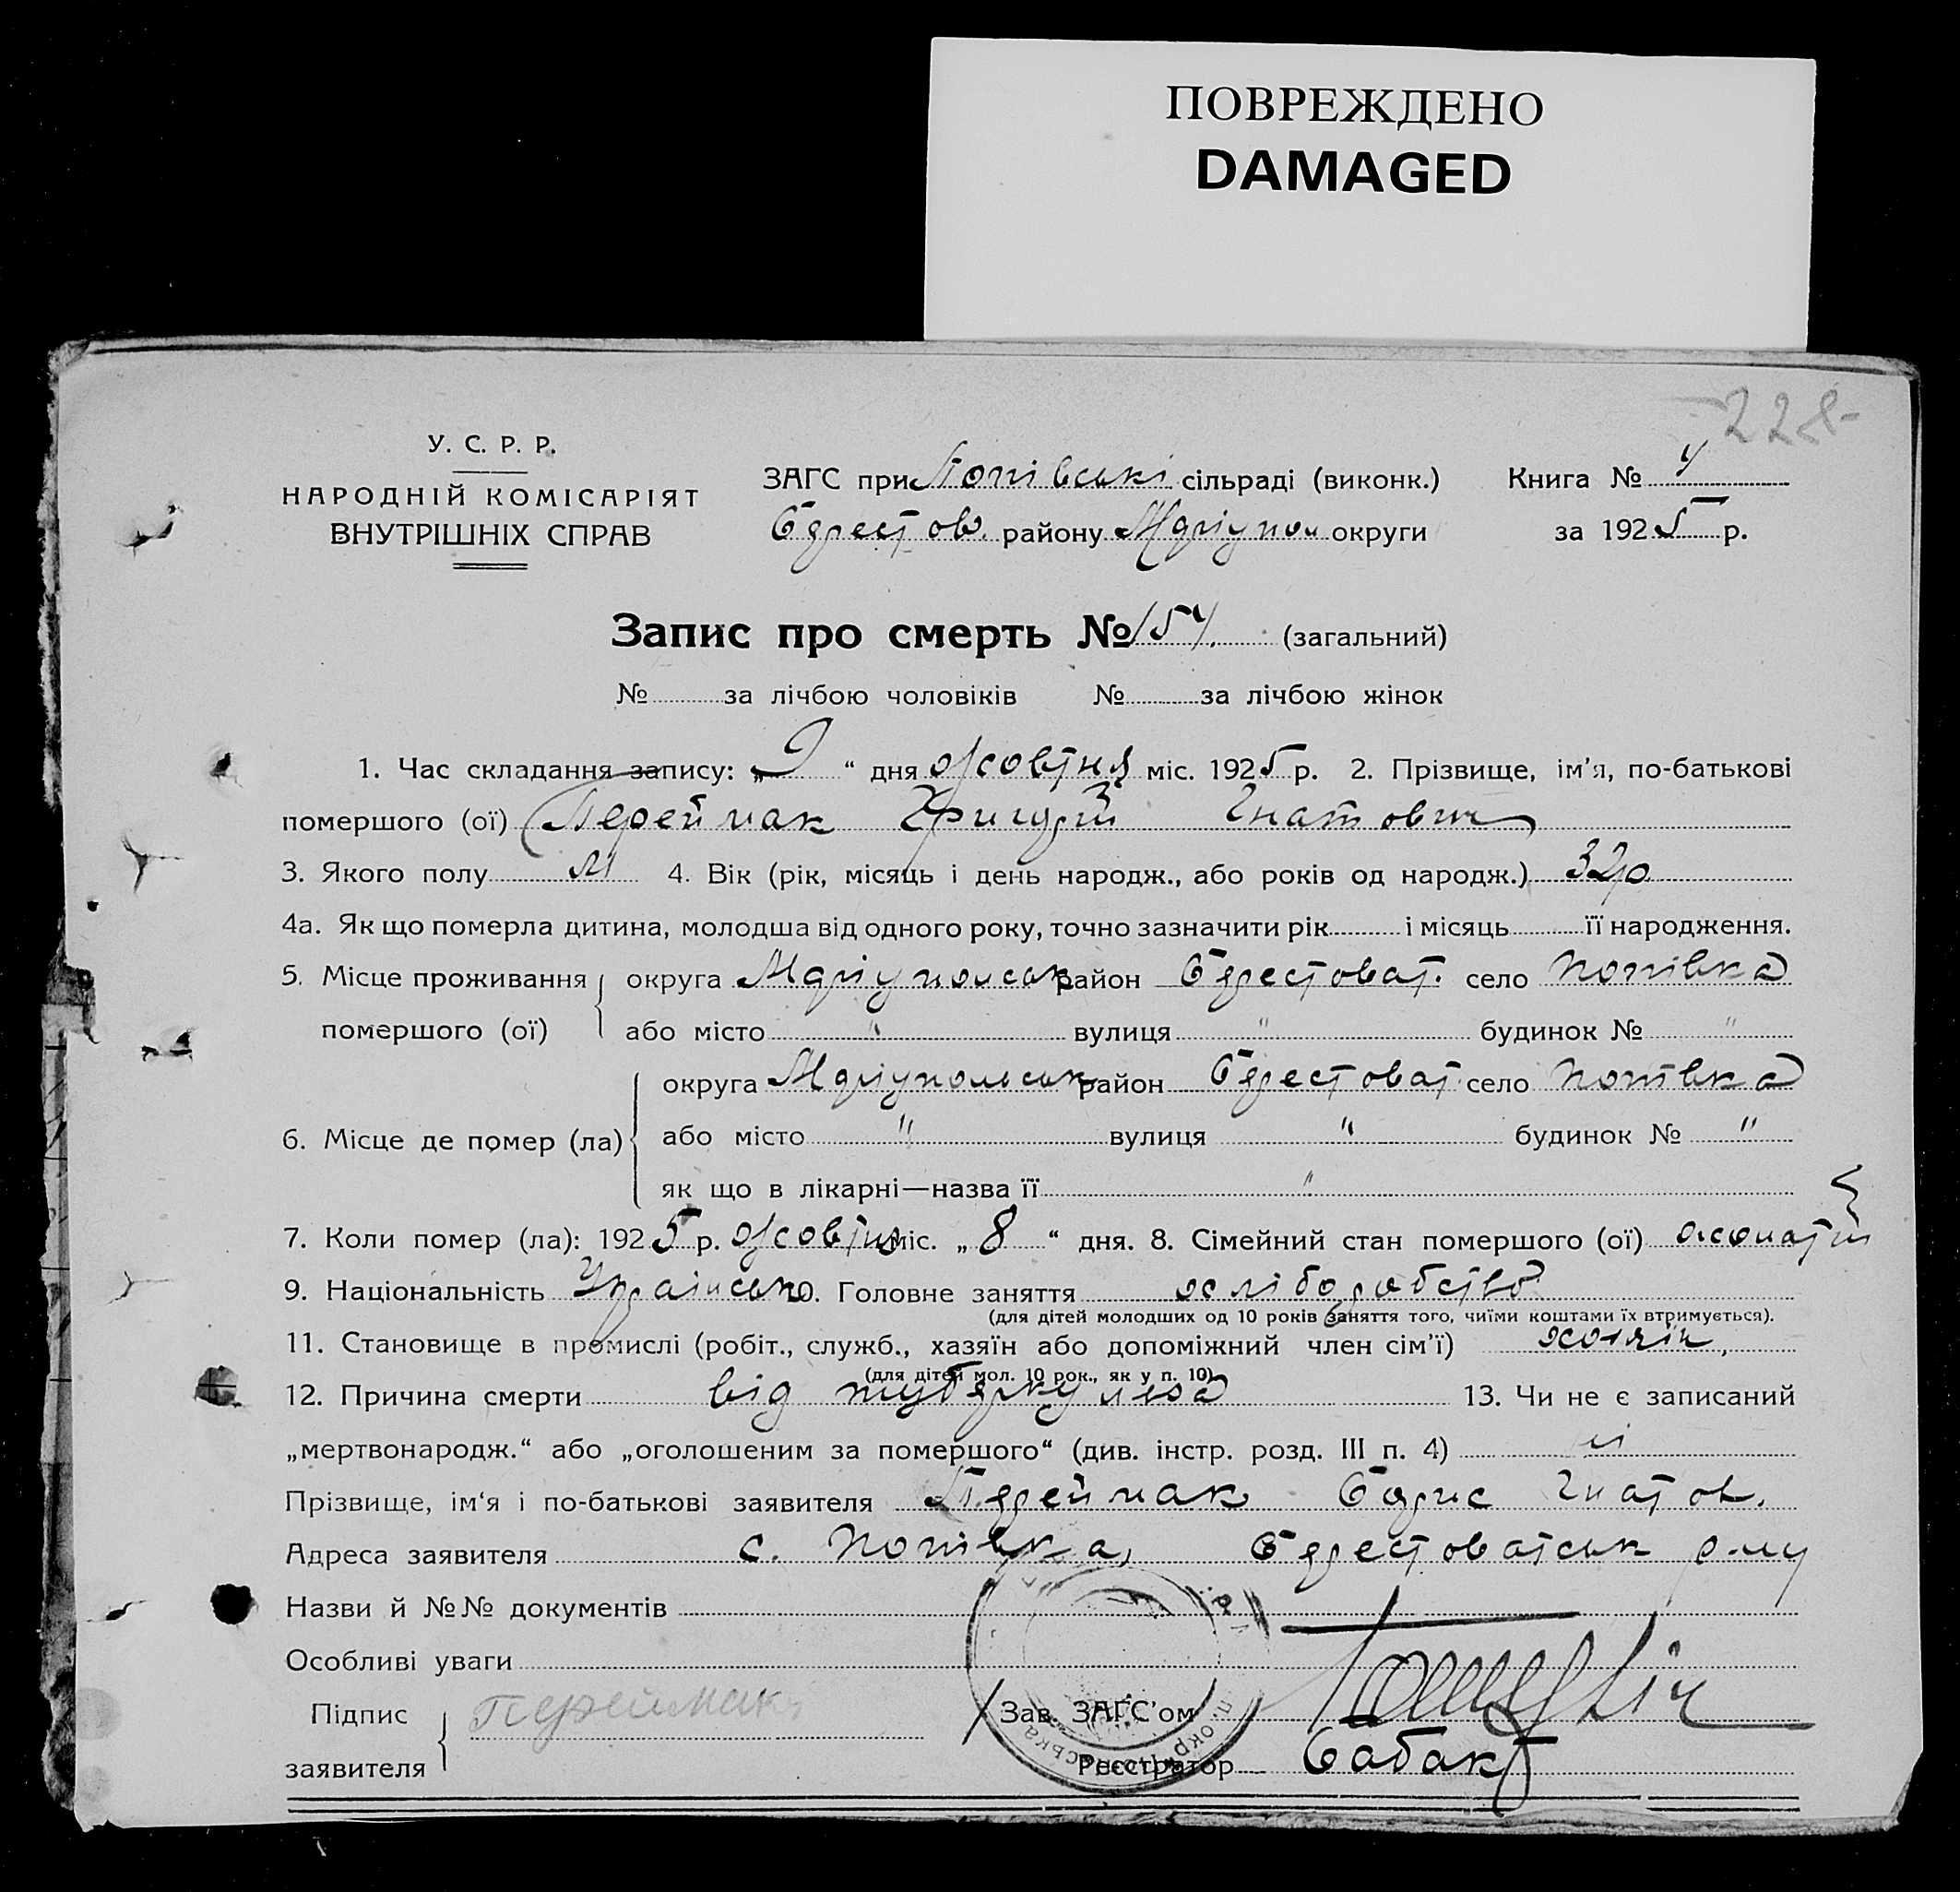 ПОВРЕЖДЕНО
DAMAGED
228
У. С. Р. Р.
НАРОДНІЙ КОМІСАРІЯТ
ВНУТРІШНІХ СПРАВ
ЗАГС при Попівські сільраді (виконк.)
Берестов. району Маріупол округи
Книга №
за 1925 р.
Запис про смерть № 154. (загальний)
№ за лічбою чоловіків № за лічбою жінок
1. Час складання запису: „9“ дня жовтня міс. 1925 р. 2. Прізвище, ім’я, по-батькові
помершого (ої) Переймак Григорій Гнатович
3. Якого полу М 4. Вік (рік, місяць і день народж., або років од народж.) 32р
4а. Як що померла дитина, молодша від одного року, точно зазначити рік і місяць її народження.
5. Місце проживання округа Маріупольськ район Берестоват. село Попівка
помершого (ої) або місто " вулиця " будинок № "
округа Маріупольськ район Берестоват село Попівка
6. Місце де помер (ла) або місто " вулиця " будинок № "
як що в лікарні—назва її "
7. Коли помер (ла): 1925 р. жовтня міс. „8“ дня. 8. Сімейний стан помершого (ої) жонатий
9. Національність Українськ 10. Головне заняття хліборобство
(для дітей молодших од 10 років заняття того, чиїми коштами їх втримується).
11. Становище в промислі (робіт., служб., хазяїн або допоміжний член сім’ї) хозяін,
(для дітей мол. 10 рок., як у п. 10)
12. Причина смерти від туберкульоза 13. Чи не є записаний
„мертвонародж.“ або „оголошеним за помершого“ (див. інстр. розд. III п. 4) ні
Прізвище, ім‘я і по-батькові заявителя Переймак Борис Гнатов.
Адреса заявителя с. Попівка, Берестоватськ р-ну
Назви й №№ документів
Особливі уваги
Підпис Переймак
заявителя
Зав. ЗАГС’ом
Реєстратор Бабак